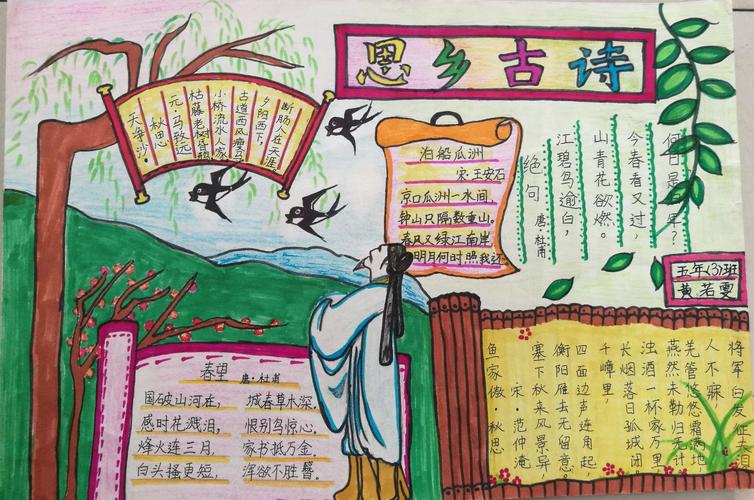 恩乡古诗
天净沙·
秋思
元·马致远
枯藤老树昏鸦
小桥流水人家
古道西风瘦马
夕阳西下,
断肠人在天涯。
泊船瓜洲
宋·王安石
京口瓜洲一水间,
钟山只隔数重山。
春风又绿江南岸,
明月何时照我还
绝句
唐·杜甫
江碧鸟逾白,
山青花欲燃。
今春看又过,
何日是归年?
五年(3)班
黄若雯
春望
唐·杜甫
国破山河在, 城春草木深。
感时花溅泪, 恨别鸟惊心。
烽火连三月, 家书抵万金。
白头搔更短, 浑欲不胜簪。
鱼家傲·秋思
宋·范仲淹
塞下秋来风景异,
衡阳雁去无留意。
四面边声连角起,
千嶂里,
长烟落日孤城闭
浊酒一杯家万里
燕然未勒归无计
羌管悠悠霜满地
人不寐
将军白发征夫泪